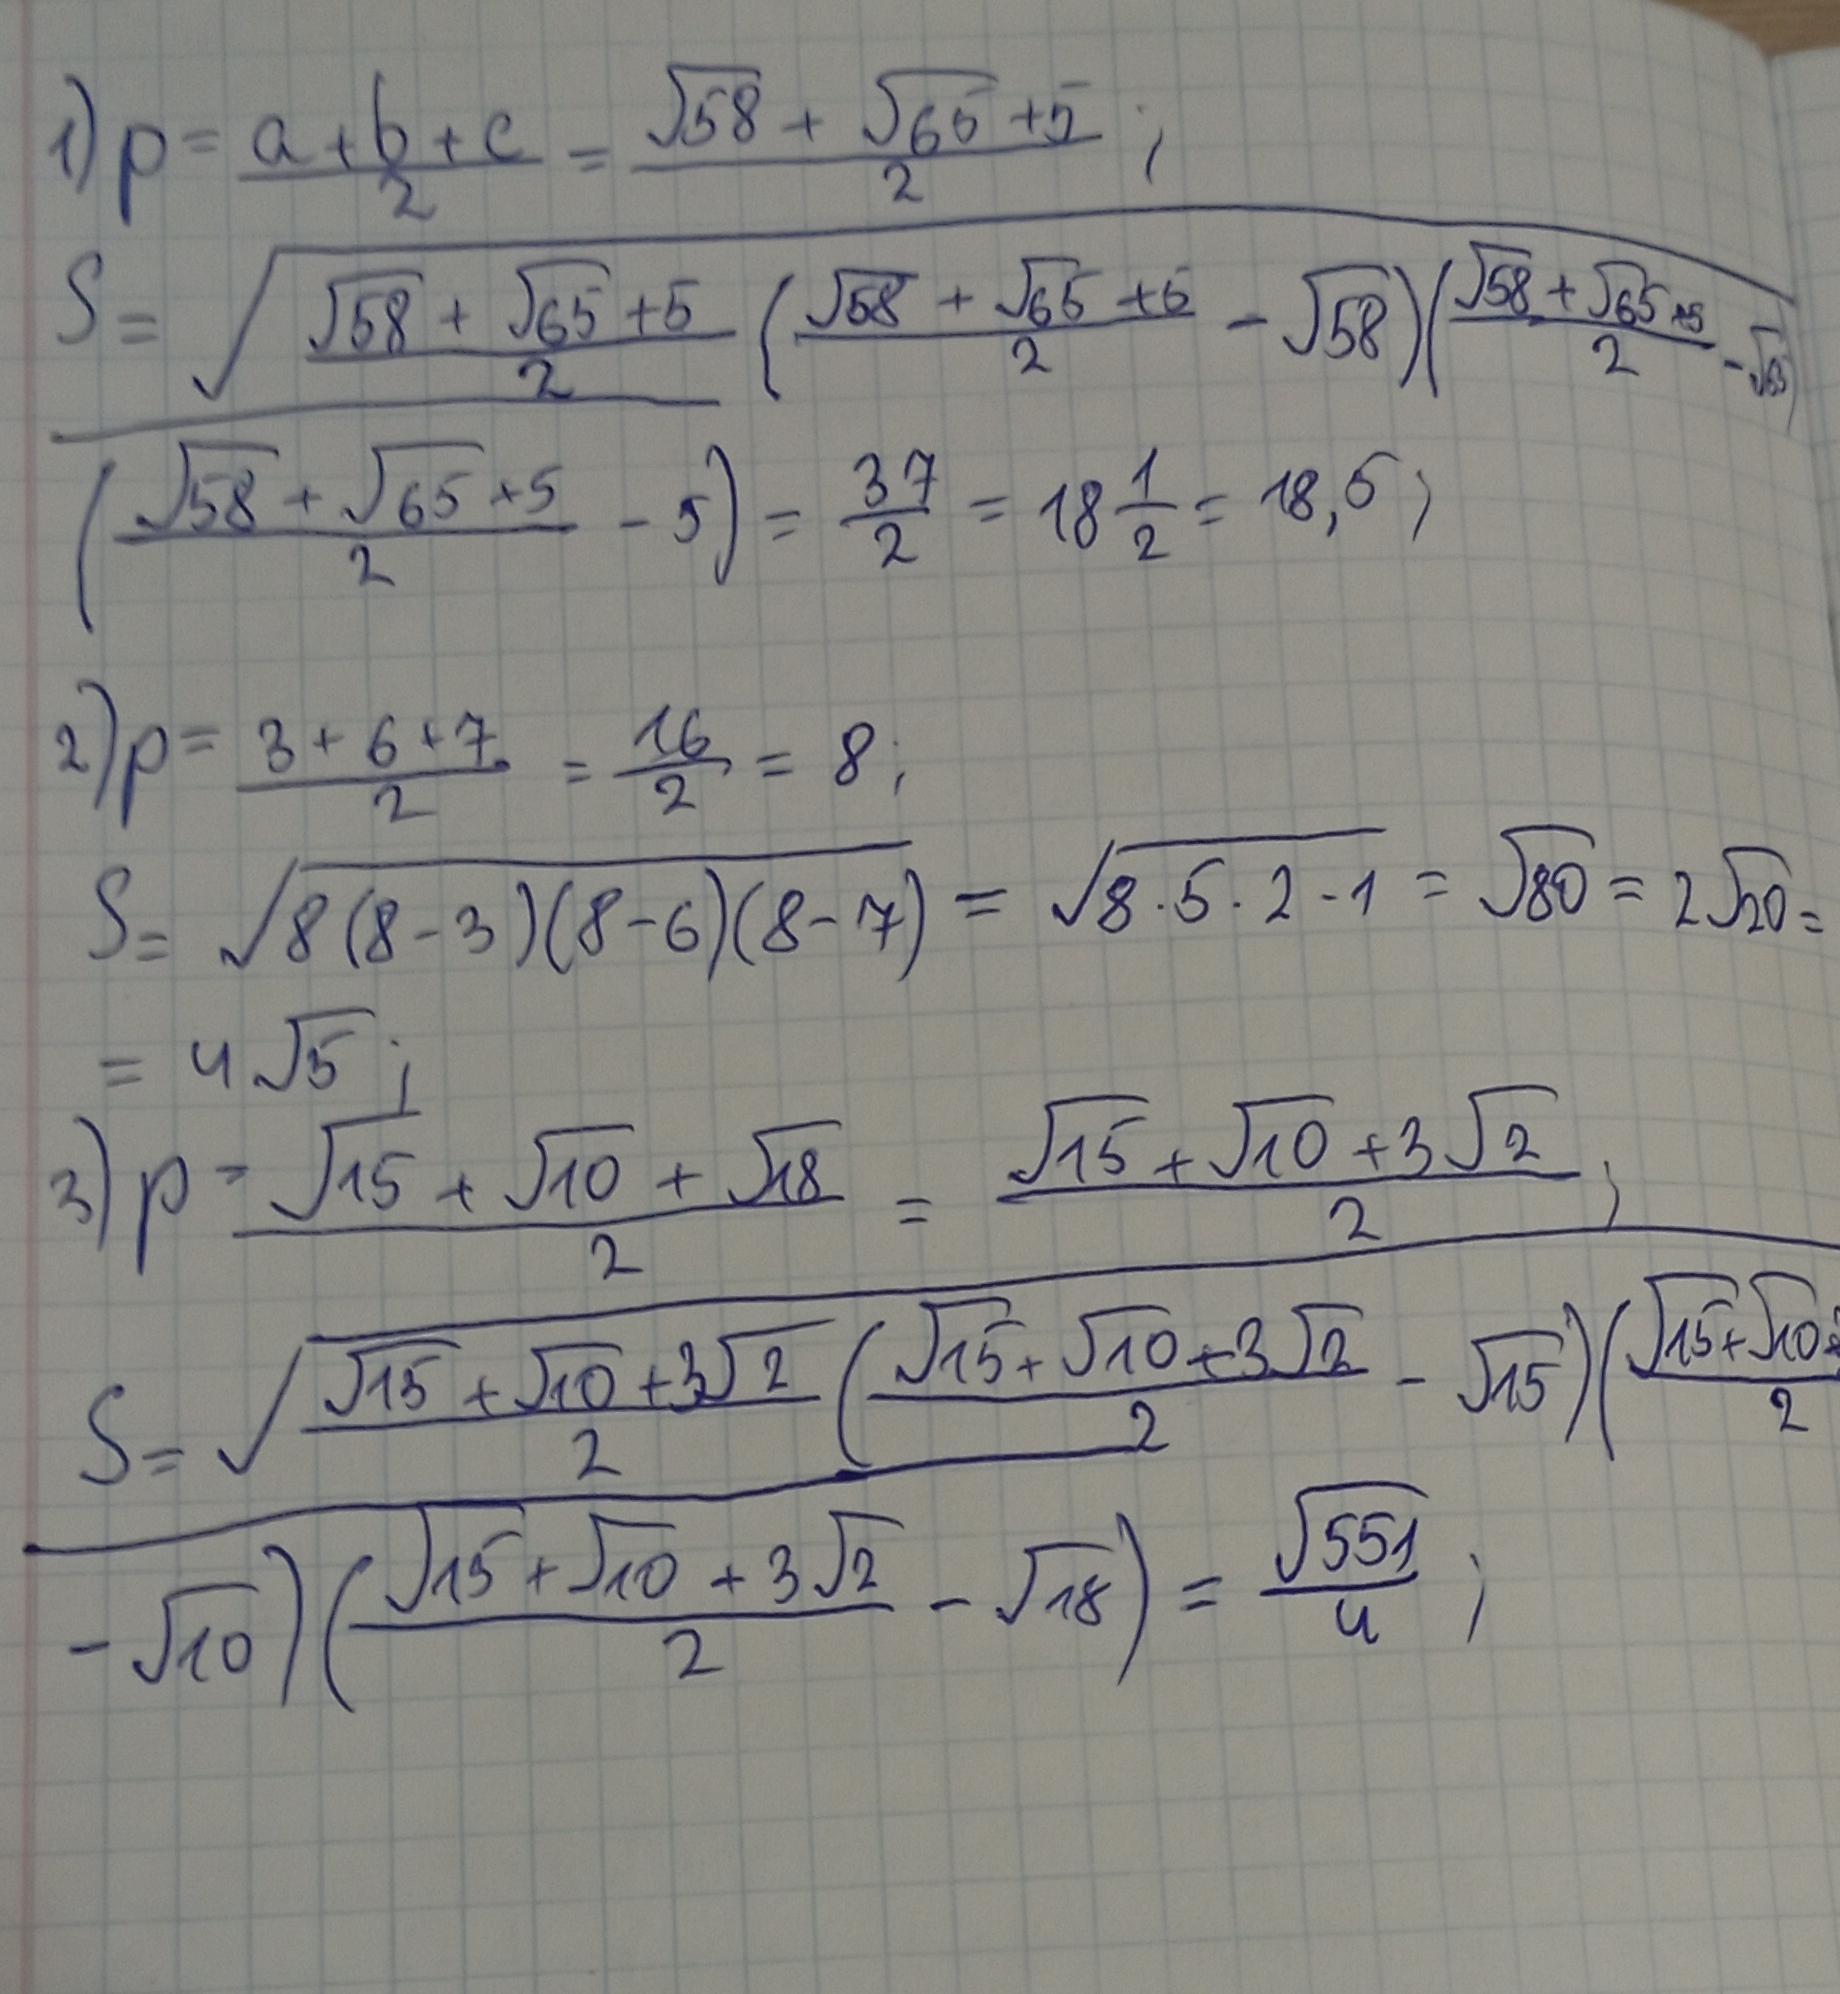 1) p = (a + b + c)/2 = (√58 + √65 + 5)/2 ;
S = √((√58 + √65 + 5)/2 ((√58 + √65 + 5)/2 - √58)((√58 + √65 + 5)/2 - √65)
((√58 + √65 + 5)/2 - 5) = 37/2 = 18 1/2 = 18,5 ;
2) p = (3 + 6 + 7)/2 = 16/2 = 8 ;
S = √(8(8 - 3)(8 - 6)(8 - 7)) = √(8 · 5 · 2 · 1) = √80 = 2√20 =
= 4√5 ;
3) p = (√15 + √10 + √18)/2 = (√15 + √10 + 3√2)/2 ;
S = √((√15 + √10 + 3√2)/2 ((√15 + √10 + 3√2)/2 - √15)((√15 + √10 +)/2
- √10)((√15 + √10 + 3√2)/2 - √18) = √551/4 ;